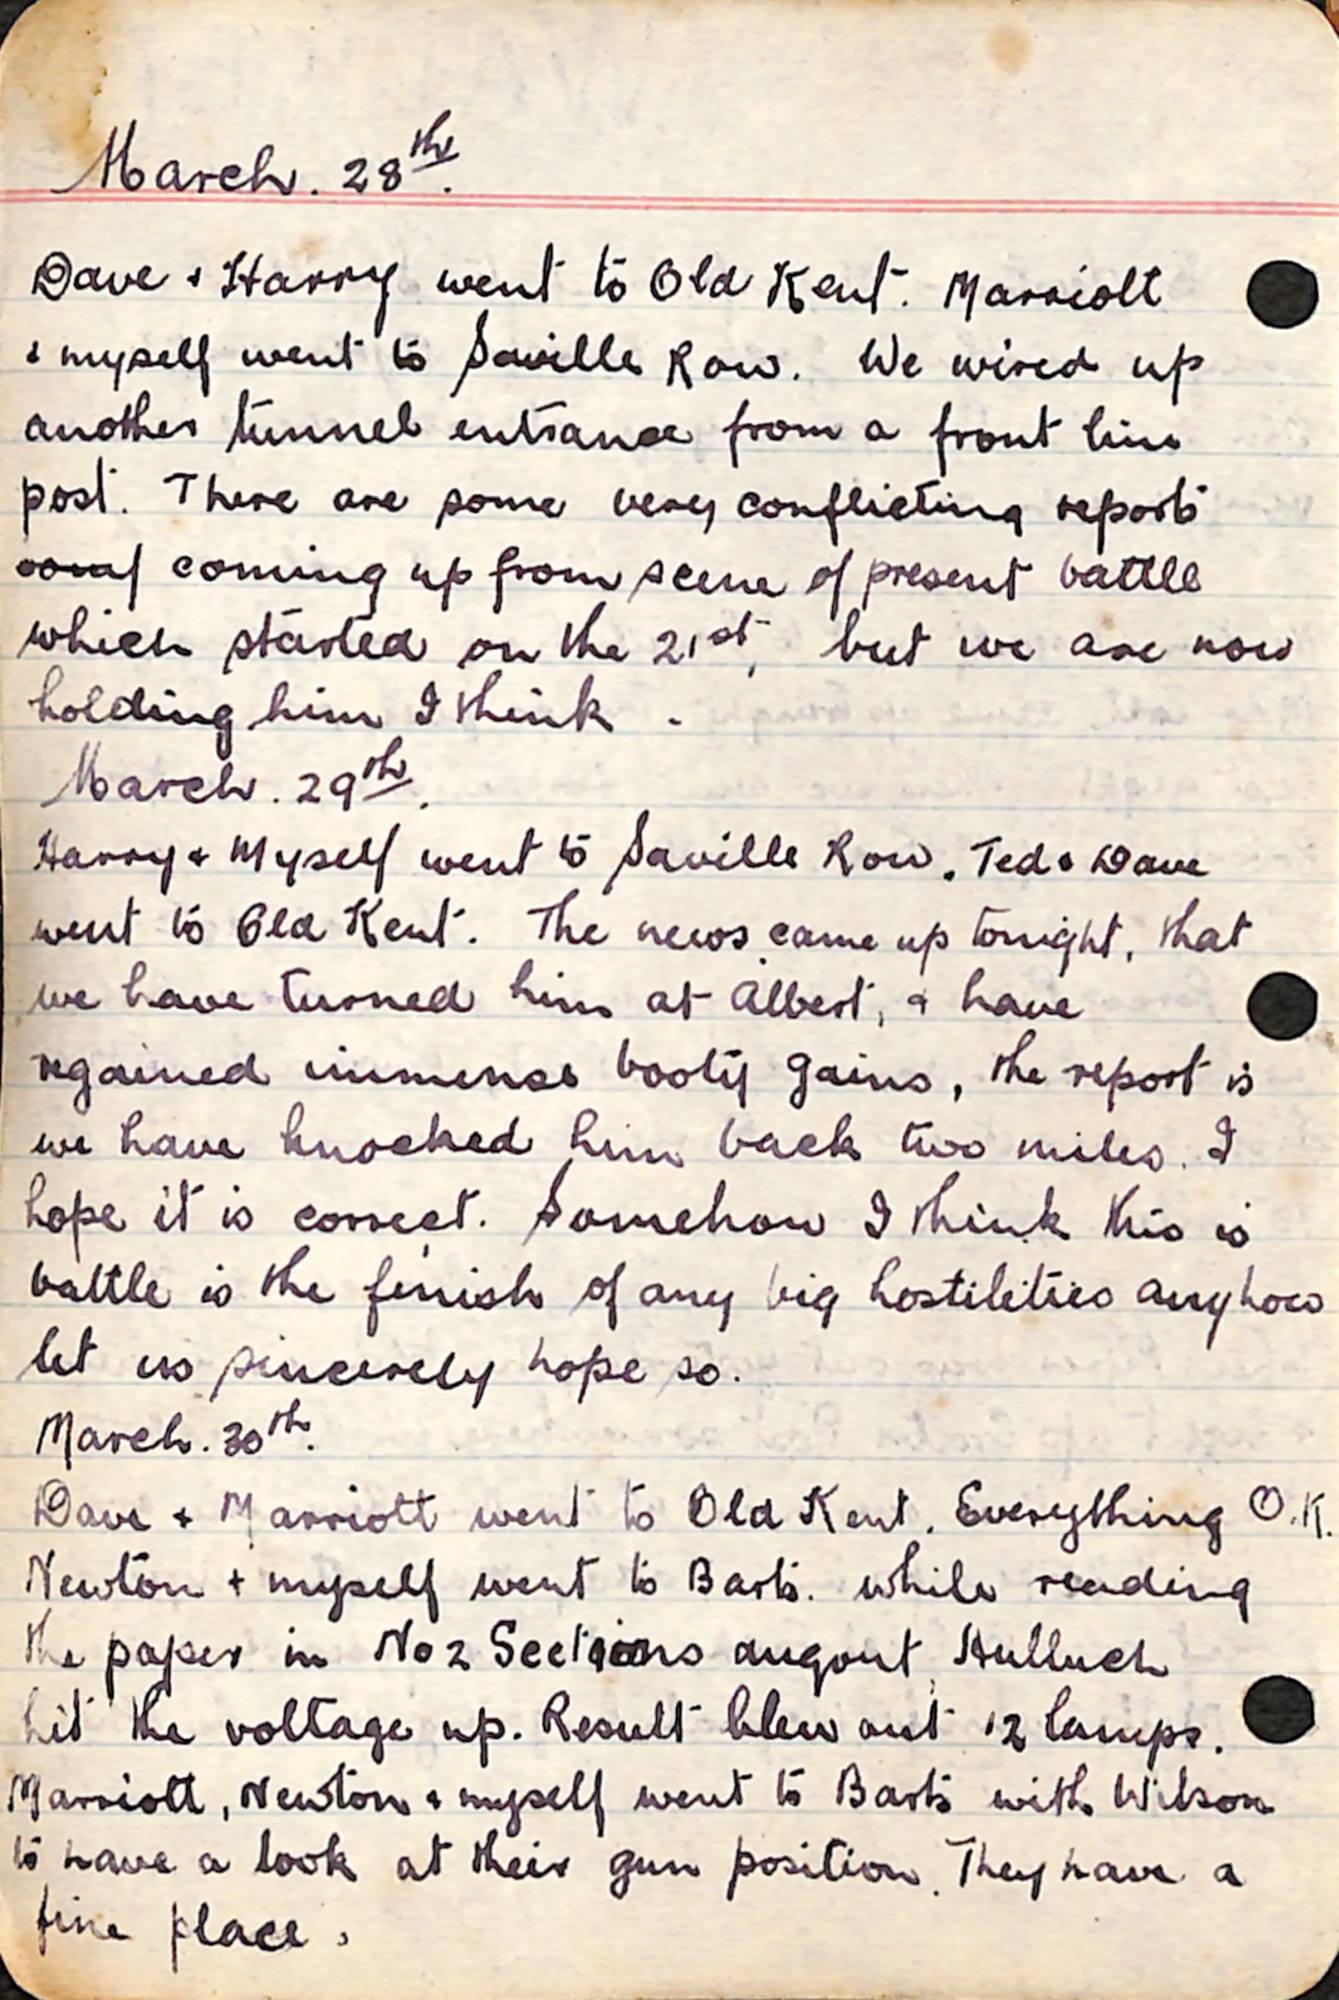 March. 28th.
Dave & Harry went to Old Kent. Marriott
& myself went to Saville Row. We wired up
another tunnel entrance from a front line
post. There are some very conflicting reports
coming up from scene of present battle
which started on the 21st, but we are now
holding him I think.
March. 29th.
Harry & Myself went to Saville Row. Ted & Dave
went to Old Kent. The news came up tonight, that
we have turned him at Albert, & have
regained immense booty gains, the report is
we have knocked him back two miles. I
hope it is correct. Somehow I think this is
battle is the finish of any big hostilities anyhow
let us sincerely hope so.
March. 30th.
Dave & Marriott went to Old Kent. Everything O.K.
Newton & myself went to Barts. while reading
the paper in No 2 Sections dugout, Hulluch
hit the voltage up. Result blew out 12 lamps.
Marriott, Newton & myself went to Barts with Wilson
to have a look at their gun position. They have a
fine place.